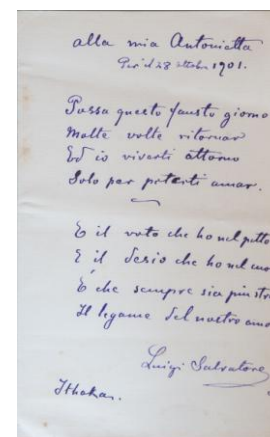 alla mia Antonietta
Per il 28 ottobre 1901.
Possa questo fausto giorno
Molte volte ritornar
Ed io viverti attorno
Solo per poterti amar.
E il voto che ho nel petto
E il desio che ho nel cuo
È che sempre sia più str
Il legame del nostro amo
Luigi Salvatore
Ithaka.